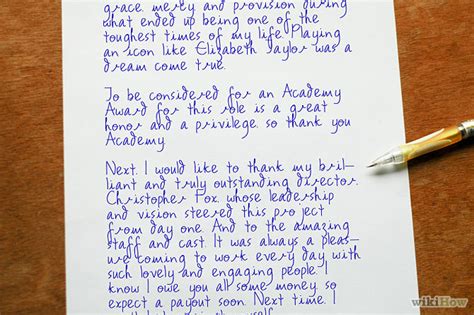 grace, mercy and provision during
what ended up being one of the
toughest times of my life. Playing
an icon like Elizabeth Taylor was a
dream come true.
To be considered for an Academy
Award for this role is a great
honor and a privilege, so thank you
Academy.
Next, I would like to thank my bril-
liant and truly outstanding director,
Christopher Fox, whose leadership
and vision steered this project
from day one. And to the amazing
staff and cast. It was always a pleas-
ure coming to work every day with
such lovely and engaging people. I
know I owe you all some money, so
expect a payout soon. Next time, I
wikiHow